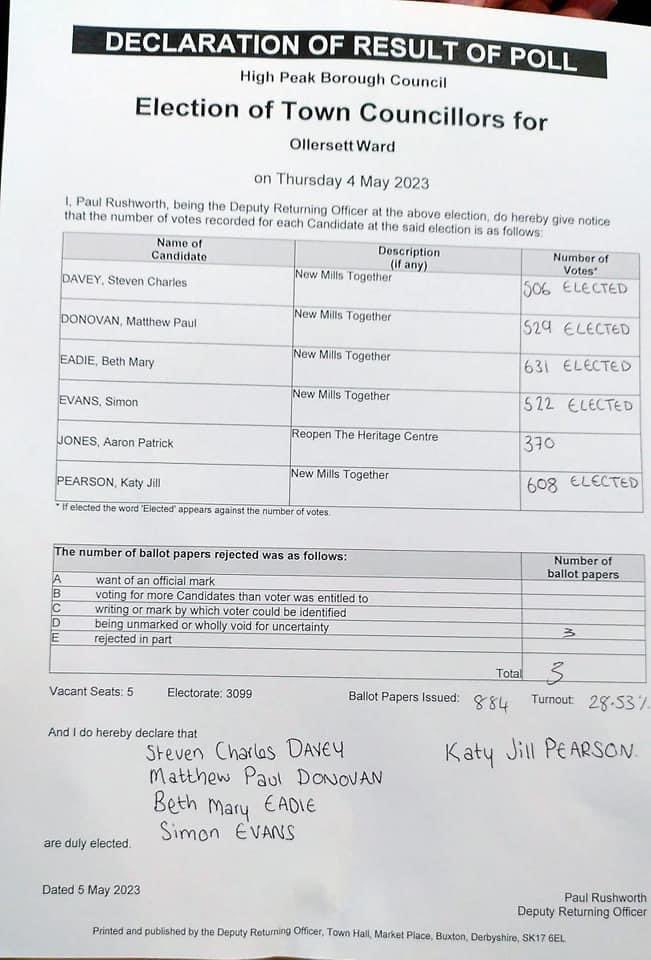 DECLARATION OF RESULT OF POLL
High Peak Borough Council
Election of Town Councillors for
Ollersett Ward
on Thursday 4 May 2023
I, Paul Rushworth, being the Deputy Returning Officer at the above election, do hereby give notice
that the number of votes recorded for each Candidate at the said election is as follows:
Name of Candidate Description (if any) Number of Votes*
DAVEY, Steven Charles New Mills Together 506 ELECTED
DONOVAN, Matthew Paul New Mills Together 529 ELECTED
EADIE, Beth Mary New Mills Together 631 ELECTED
EVANS, Simon New Mills Together 522 ELECTED
JONES, Aaron Patrick Reopen The Heritage Centre 370
PEARSON, Katy Jill New Mills Together 608 ELECTED
* If elected the word 'Elected' appears against the number of votes.
The number of ballot papers rejected was as follows: Number of ballot papers
A want of an official mark
B voting for more Candidates than voter was entitled to
C writing or mark by which voter could be identified
D being unmarked or wholly void for uncertainty 3
E rejected in part
Total 3
Vacant Seats: 5 Electorate: 3099 Ballot Papers Issued: 884 Turnout: 28.53%
And I do hereby declare that
Steven Charles DAVEY Katy Jill PEARSON.
Matthew Paul DONOVAN
Beth Mary EADIE
Simon EVANS
are duly elected.
Dated 5 May 2023
Paul Rushworth
Deputy Returning Officer
Printed and published by the Deputy Returning Officer, Town Hall, Market Place, Buxton, Derbyshire, SK17 6EL